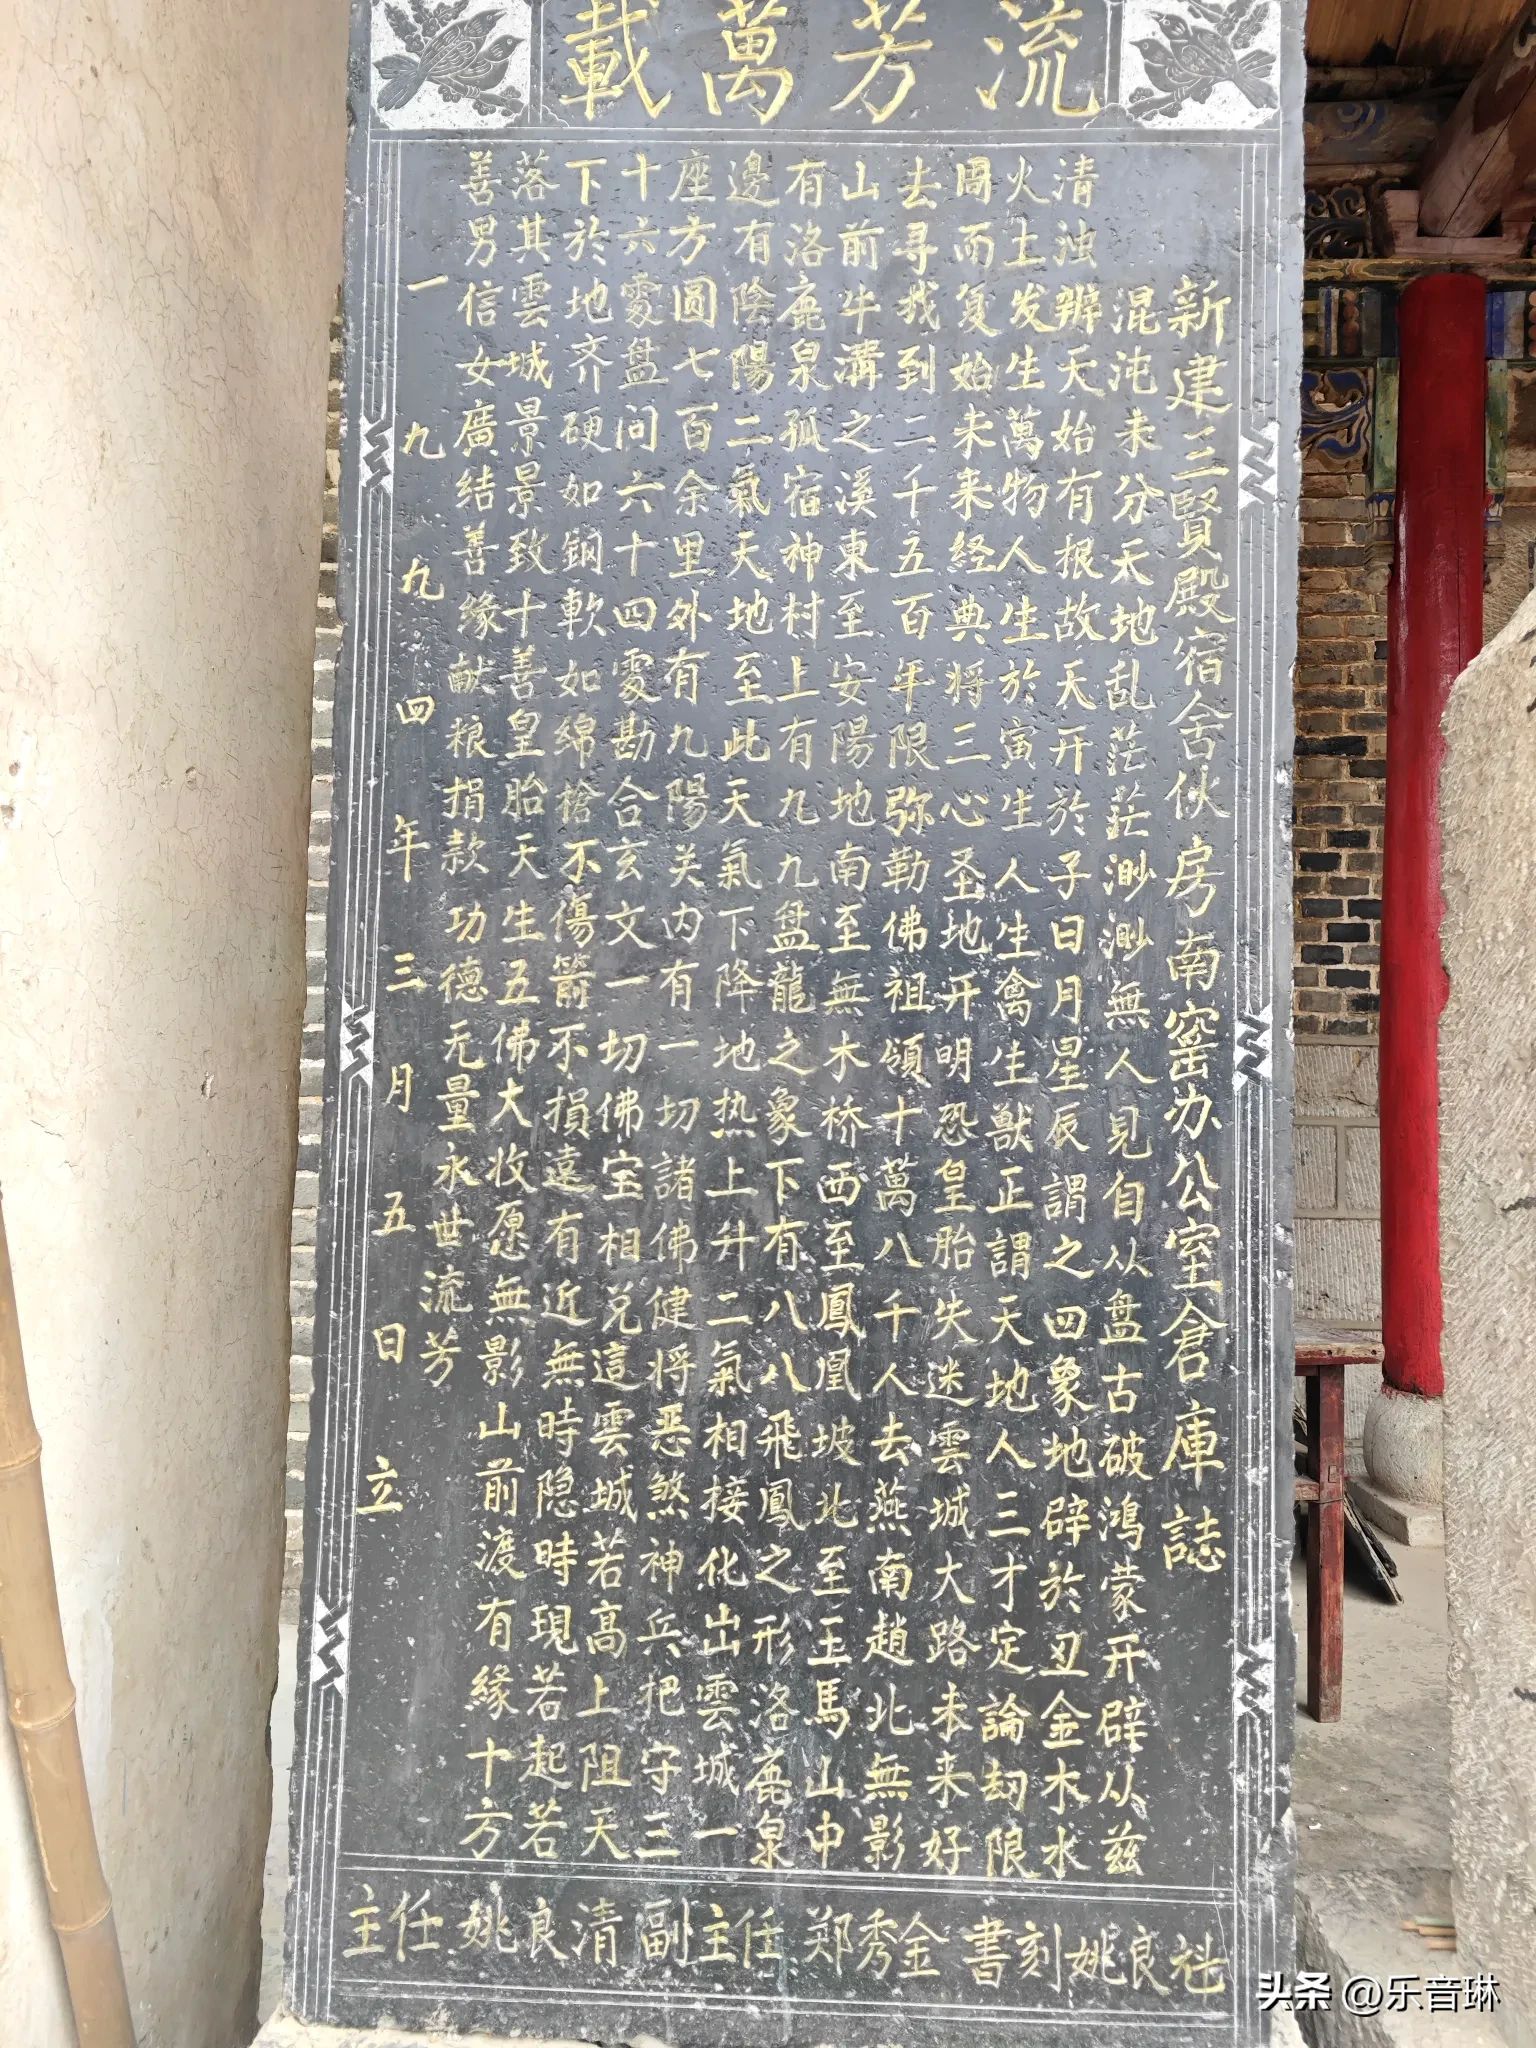 流芳萬載
新建三賢殿宿舍伙房南窰办公室倉庫誌
混沌未分天地乱茫茫渺渺無人見自从盘古破鴻蒙开辟从兹
清浊辨天始有根故天开於子日月星辰謂之四象地辟於丑金木水
火土发生萬物人生於寅生人生禽生獸正謂天地人三才定論劫限
周而复始未来经典将三心圣地开明恐皇胎失迷雲城大路未来好
去寻找到二千五百年限弥勒佛祖領十萬八千人去燕南趙北無影
山前牛溝之溪東至安陽地南至無木桥西至鳳凰坡北至玉馬山中
有洛鹿泉孤宿神村上有九九盘龍之象下有八八飛鳳之形洛鹿泉
邊有陰陽二氣天地至此天氣下降地热上升二氣相接化出雲城一
座方圆七百余里外有九陽关内有一切諸佛健将恶煞神兵把守三
十六處盘问六十四處勘合玄文一切佛宝相兑這雲城若高上阻天
下於地齐硬如鋼軟如綿槍不傷箭不損遠有近無時隐時現若起若
落其雲城景景致十善皇胎天生五佛大收愿無影山前渡有緣十方
善男信女廣结善缘献粮捐款功德无量永世流芳
一九九四年三月五日立
主任姚良清副主任郑秀金書刻姚良社
头条@乐音琳